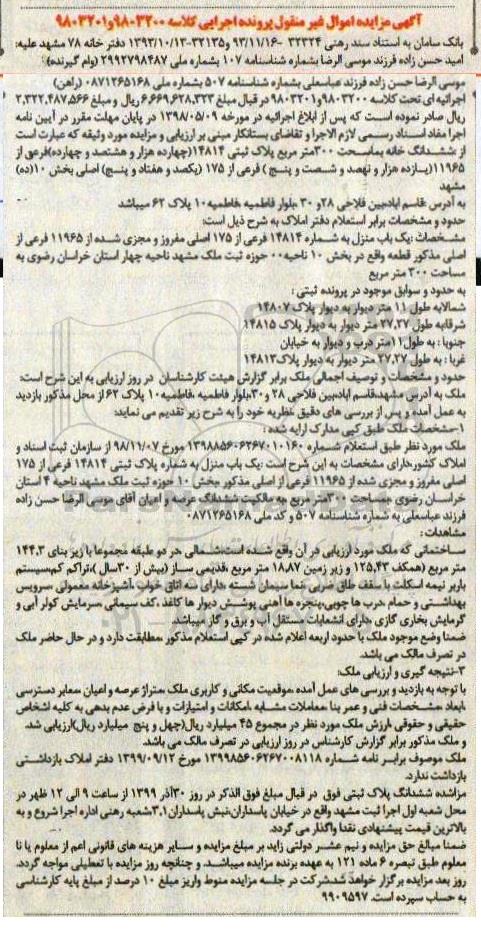 آگهی مزایده اموال غیر منقول پرونده اجرایی کلاسه ۹۸۰۳۲۰۰ و ۹۸۰۳۲۰۱
بانک سامان به استناد سند رهنی ۳۲۳۲۴ -۹۳/۱۱/۱۶ و ۳۲۱۳۵-۱۳۹۳/۱۰/۱۳ دفتر خانه ۷۸ مشهد علیه:
امید حسن زاده فرزند موسی الرضا بشماره شناسنامه ۱۰۷ بشماره ملی ۲۹۹۲۷۹۸۴۸۷ (وام گیرنده)
موسی الرضا حسن زاده فرزند عباسعلی بشماره شناسنامه ۵۰۷ بشماره ملی ۰۸۷۱۲۶۵۱۶۸ (راهن)
اجرائیه ای تحت کلاسه ۹۸۰۳۲۰۰ و ۹۸۰۳۲۰۱ در قبال مبلغ ۶,۶۶۹,۶۲۸,۳۲۳ ریال و مبلغ ۲,۳۲۲,۴۸۷,۵۶۶
ریال صادر نموده است که پس از ابلاغ اجرائیه در مورخه ۱۳۹۸/۰۵/۰۹ در پایان مهلت مقرر در آیین نامه
اجرا مفاد اسناد رسمی لازم الاجرا و تقاضای بستانکار مبنی بر ارزیابی و مزایده مورد وثیقه که عبارت است
از :ششدانگ خانه بمساحت ۳۰۰متر مربع پلاک ثبتی ۱۴۸۱۴(چهارده هزار و هشتصد و چهارده)فرعی از
۱۱۹۶۵(یازده هزار و نهصد و شصت و پنج ) فرعی از ۱۷۵ (یکصد و هفتاد و پنج) اصلی بخش ۱۰(ده)
مشهد
به آدرس :قاسم آباد،بین فلاحی ۲۸و ۳۰ ،بلوار فاطمیه ،فاطمیه۱۰ پلاک ۶۲ میباشد
حدود و مشخصات برابر استعلام دفتر املاک به شرح ذیل است:
مشخصات :یک باب منزل به شماره ۱۴۸۱۴ فرعی از ۱۷۵ اصلی مفروز و مجزی شده از ۱۱۹۶۵ فرعی از
اصلی مذکور قطعه واقع در بخش ۱۰ ناحیه۰۰ حوزه ثبت ملک مشهد ناحیه چهار استان خراسان رضوی به
مساحت ۳۰۰ متر مربع
به حدود و سوابق موجود در پرونده ثبتی :
شمالا:به طول ۱۱ متر دیوار به دیوار پلاک ۱۴۸۰۷
شرقا:به طول ۲۷,۲۷ متر دیوار به دیوار پلاک ۱۴۸۱۵
جنوبا : به طول۱۱متر درب و دیوار به خیابان
غربا : به طول ۲۷,۲۷ متر دیوار به دیوار پلاک۱۴۸۱۳
حدود و مشخصات و توصیف اجمالی ملک برابر گزارش هیئت کارشناسان در روز ارزیابی به این شرح است:
ملک به آدرس مشهد،قاسم آباد،بین فلاحی ۲۸ و۳۰،بلوار فاطمیه ،فاطمیه۱۰ پلاک ۶۲ از محل مذکور بازدید
به عمل آمده و پس از بررسی های دقیق ،نظریه خود را به شرح زیر تقدیم می نماید:
۱-مشخصات ملک طبق کپی مدارک ارایه شده :
ملک مورد نظر طبق استعلام شماره ۱۳۹۸۸۵۶۰۶۲۶۷۰۱۰۱۶۰ مورخ ۹۸/۱۱/۰۷ از سازمان ثبت اسناد و
املاک کشور،دارای مشخصات به این شرح است :یک باب منزل به شماره پلاک ثبتی ۱۴۸۱۴ فرعی از ۱۷۵
اصلی مفروز و مجزی شده از ۱۱۹۶۵ فرعی از اصلی مذکور ،بخش ۱۰ حوزه ثبت ملک مشهد ناحیه ۴ استان
خراسان رضوی ،بمساحت ۳۰۰متر مربع ،به مالکیت ششدانگ عرصه و اعیان آقای موسی الرضا حسن زاده
فرزند عباسعلی به شماره شناسنامه ۵۰۷ و کد ملی ۰۸۷۱۲۶۵۱۶۸
مشاهدات :
ساختمانی که ملک مورد ارزیابی در آن واقع شده است،شمالی ،در دو طبقه مجموعا با زیر بنای ۱۴۴,۳
متر مربع (همکف ۱۲۵,۴۳ و زیر زمین ۱۸,۸۷ متر مربع ،قدیمی ساز (بیش از ۳۰سال )،تراکم کم،سیستم
باربر نیمه اسکلت با سقف طاق ضربی ،نما سیمان شسته ،دارای سه اتاق خواب ،آشپزخانه معمولی ،سرویس
بهداشتی و حمام ،درب ها چوبی،پنجره ها آهنی پوشش دیوار ها کاغذ ،کف سیمانی ،سرمایش کولر آبی و
گرمایش بخاری گازی ،دارای انشعابات مستقل آب و برق و گاز میباشد.
ضمنا وضع موجود ملک با حدود اربعه اعلام شده در کپی استعلام مذکور ،مطابقت دارد و در حال حاضر ملک
در تصرف مالک می باشد.
۳-نتیجه گیری و ارزیابی ملک:
با توجه به بازدید و بررسی های عمل آمده ،موقعیت مکانی و کاربری ملک ،متراژ عرصه و اعیان ،معابر دسترسی
،ابعاد ،مشخصات فنی و عمر بنا ،معاملات مشابه ،امکانات و امتیازات و با فرض عدم بدهی به کلیه اشخاص
حقیقی و حقوقی ،ارزش ملک مورد نظر در مجموع ۴۵ میلیارد ریال(چهل و پنج میلیارد ریال)ارزیابی شد.
و ملک مذکور برابر گزارش کارشناس در روز ارزیابی در تصرف مالک می باشد.
ملک موصوف برابر نامه شماره ۱۳۹۹۸۵۶۰۶۲۶۷۰۰۸۱۱۸ مورخ ۱۳۹۹/۰۹/۱۲ دفتر املاک بازداشتی
بازداشت ندارد.
مزایده ششدانگ پلاک ثبتی فوق در قبال مبلغ فوق الذکر در روز ۳۰آذر ۱۳۹۹ از ساعت ۹ الی ۱۲ ظهر در
محل شعبه اول اجرا ثبت مشهد واقع در خیابان پاسداران،نبش پاسداران۳,۱شعبه رهنی اداره اجرا شروع و به
بالاترین قیمت پیشنهادی نقدا واگذار می گردد.
ضمنا مبالغ حق مزایده و نیم عشر دولتی زاید بر مبلغ مزایده و سایر هزینه های قانونی اعم از معلوم یا نا
معلوم طبق تبصره ۶ ماده ۱۲۱ به عهده برنده مزایده میباشد. و چنانچه روز مزایده با تعطیلی مواجه گردد.
روز بعد مزایده برگزار خواهد شد.شرکت در جلسه مزایده منوط واریز مبلغ ۱۰ درصد از مبلغ پایه کارشناسی
به حساب سپرده است. ۹۹۰۹۵۹۷